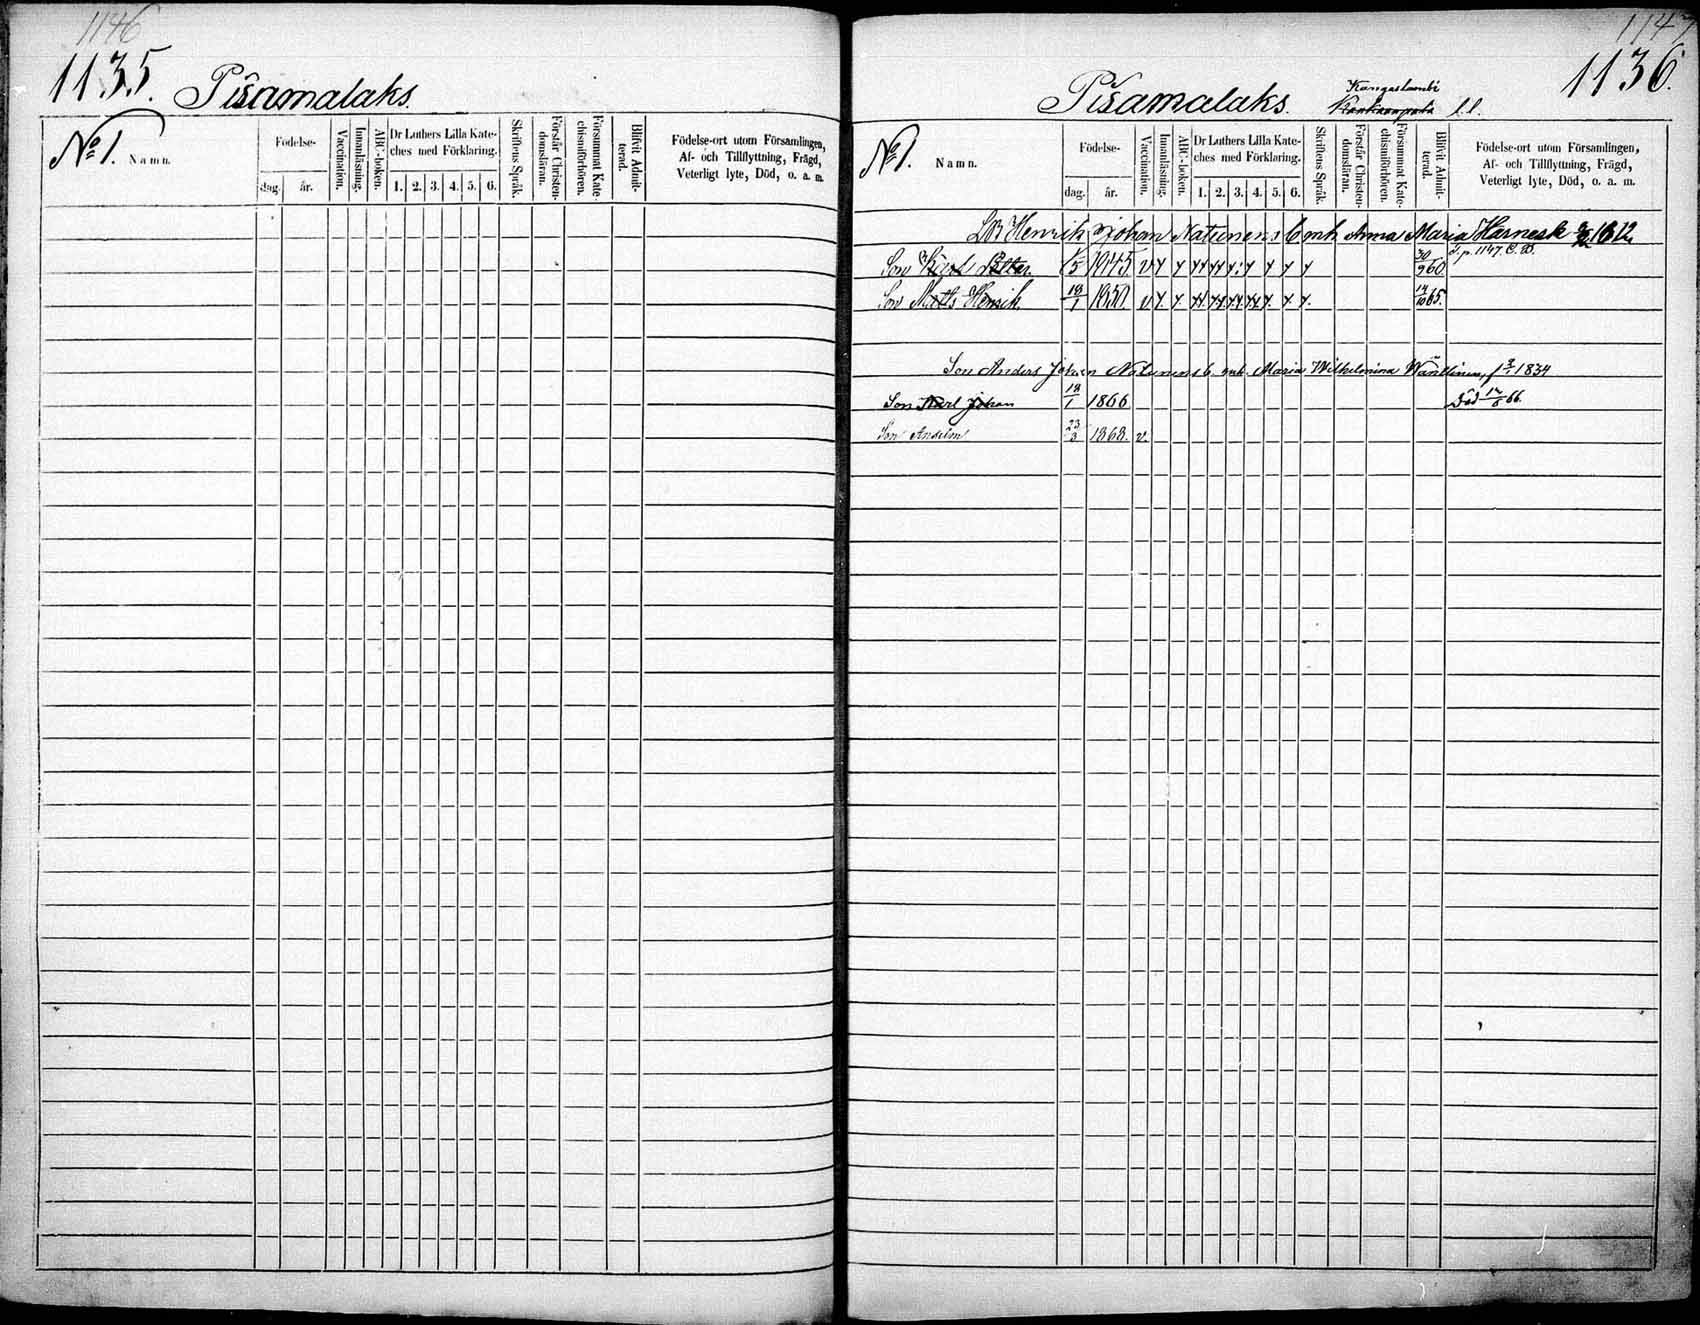 1146
1135.
Pisamalaks.
No 1. Namn.
Födelse-
dag. år.
Vaccination.
Innanläsning.
ABC-boken.
Dr Luthers Lilla Kate-
ches med Förklaring.
1. 2. 3. 4. 5. 6.
Skriftens Språk.
Förstår Christen-
domsläran.
Försummat Kate-
chismiförhören.
Blifvit Admit-
terad.
Födelse-ort utom Församlingen,
Af- och Tillflyttning, Frägd,
Veterligt lyte, Död, o. a. m.
1147
1136.
Pisamalaks. Kangaslambi l.l.
No 1. Namn.
Födelse-
dag. år.
Vaccination.
Innanläsning.
ABC-boken.
Dr Luthers Lilla Kate-
ches med Förklaring.
1. 2. 3. 4. 5. 6.
Skriftens Språk.
Förstår Christen-
domsläran.
Försummat Kate-
chismiförhören.
Blifvit Admit-
terad.
Födelse-ort utom Församlingen,
Af- och Tillflyttning, Frägd,
Veterligt lyte, Död, o. a. m.
Henrik Johan Natunens b. m. h. Anna Maria Harnesk
p. 1147.
Son Karl Petter 1845. v 30/9 60
Son Matts Henrik 18/1 1850. v 14/10 65.
Son Anders Johan Natunens b. m. h. Maria Wilhelmina Wänttinen, f 1834
Son Karl Johan 18/1 1866 Död 17/6 66.
Son Anselm 23/3 1868. v.